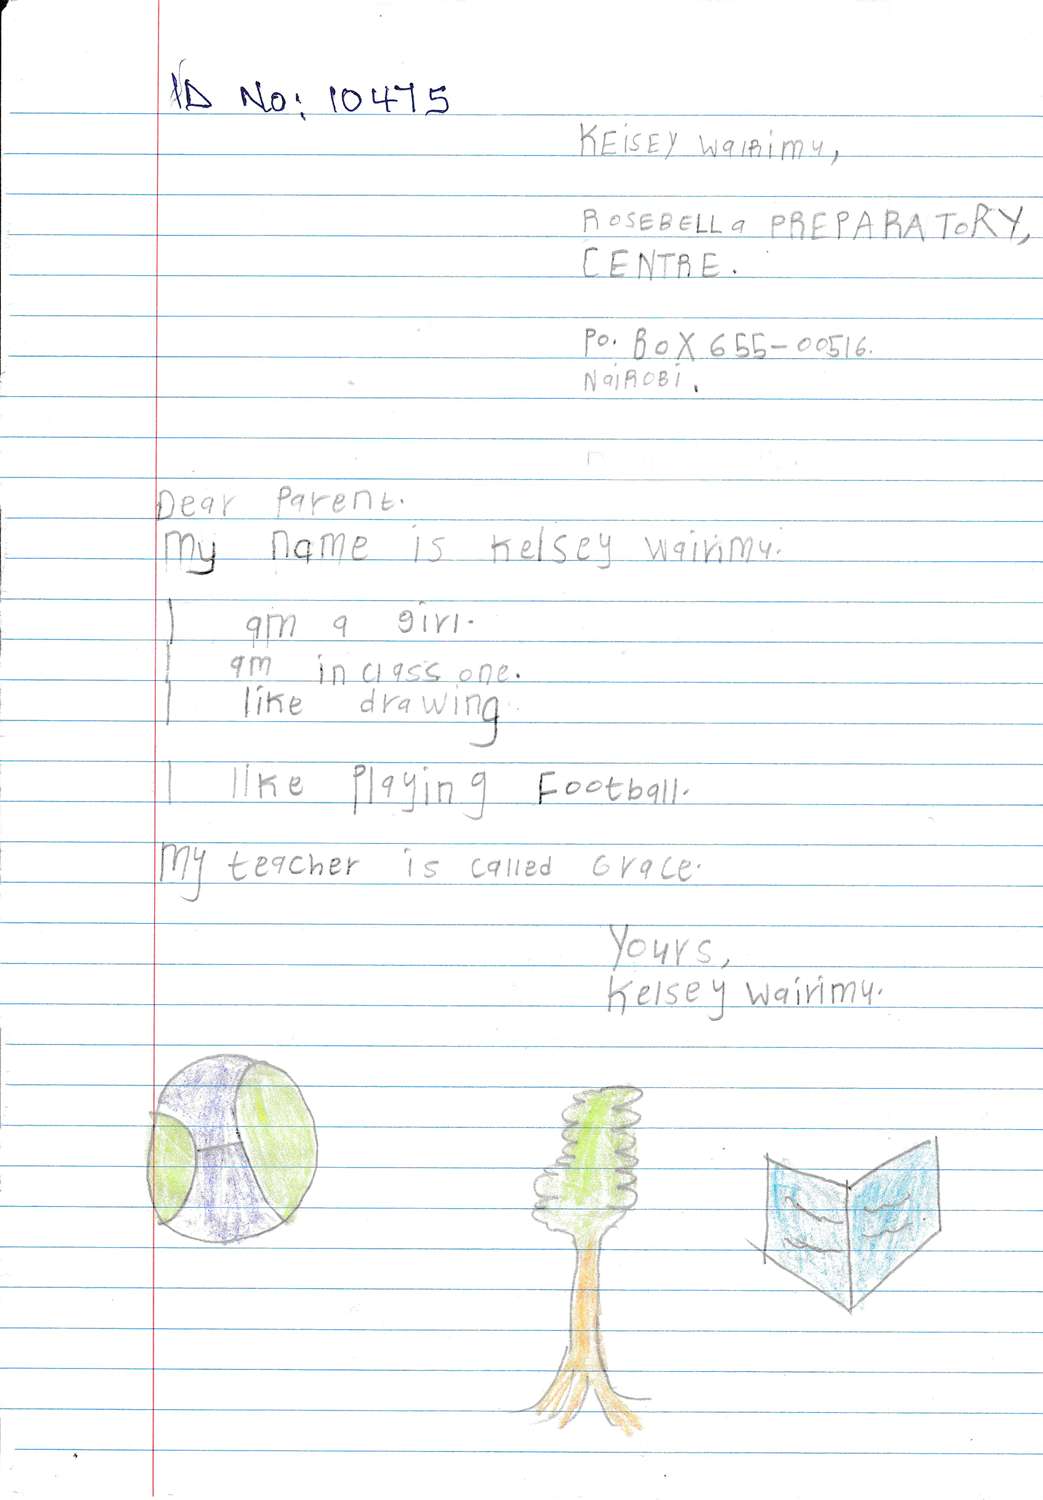 ID No: 10475
KEisEy wairimu,
ROSEBELLa PREPARAToRY,
CENTRE.
Po. BoX 655-00516.
NaiROBi.
Dear Parent.
My name is Kelsey wairimu.
I am a girl.
I am in class one.
I like drawing
I like Playing Football.
My teacher is called Grace.
Yours,
Kelsey wairimu.